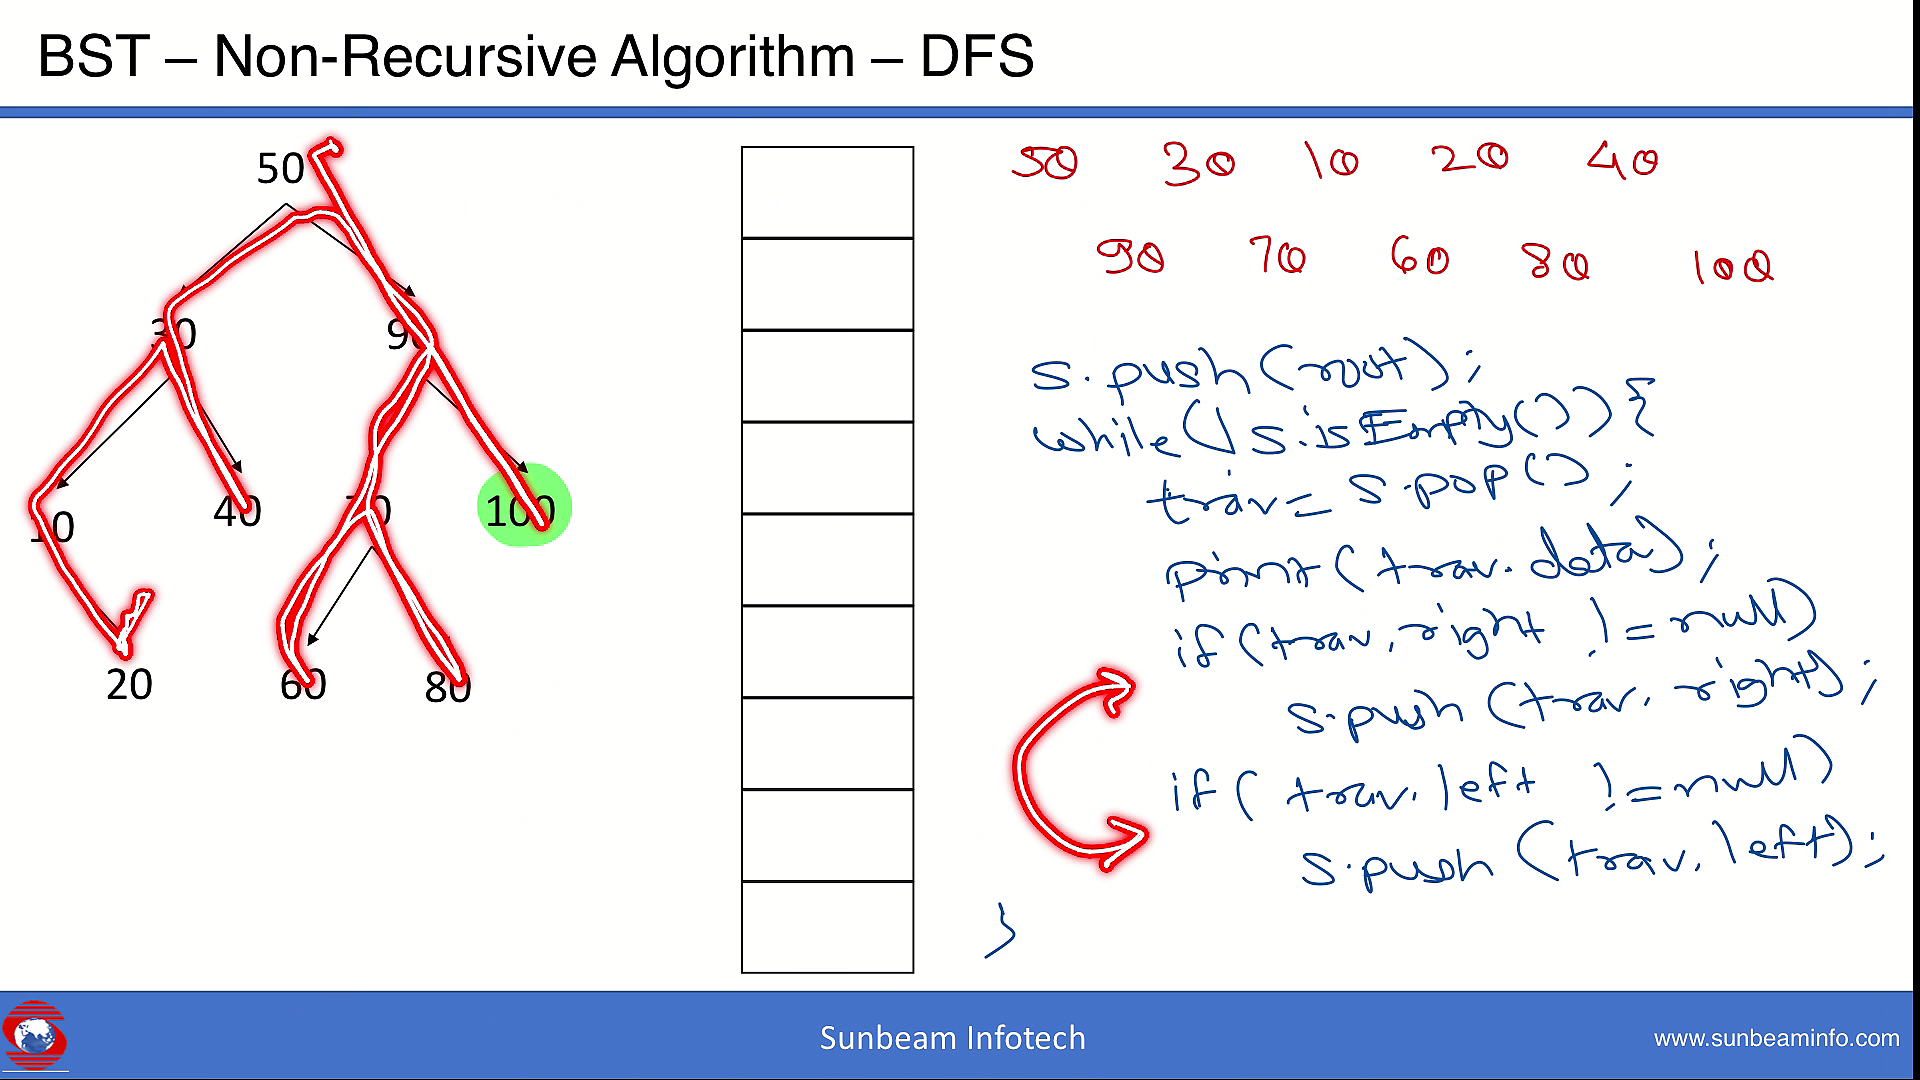 BST – Non-Recursive Algorithm – DFS
50
30 90
10 40 70 100
20 60 80
50 30 10 20 40
90 70 60 80 100
s.push(root);
while(!s.isEmpty()){
trav= s.pop();
print(trav.data);
if(trav.right !=null)
s.push(trav.right);
if(trav.left !=null)
s.push(trav.left);
}
Sunbeam Infotech
www.sunbeaminfo.com